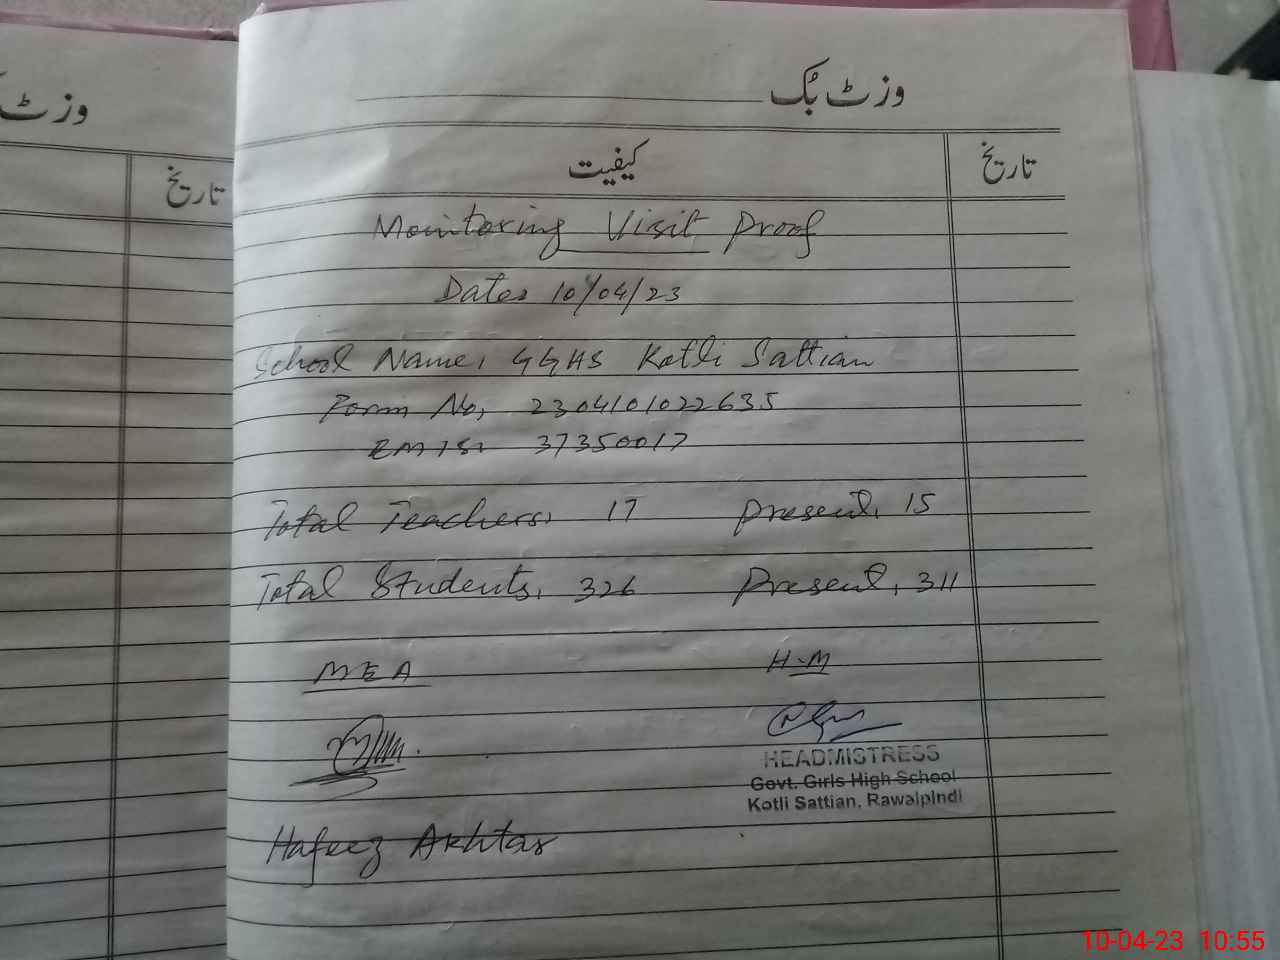 وزٹ بُک
تاریخ
وزٹ بُک
کیفیت
تاریخ
Monitoring Visit Proof
Date: 10/04/23
School Name: GGHS Kotli Sattian
Form No: 2304101022635
EMIS: 37350017
Total Teachers: 17 Present: 15
Total Students: 326 Present: 311
MEA H.M
HEADMISTRESS
Govt. Girls High School
Kotli Sattian, Rawalpindi
Hafeez Akhtar
10-04-23 10:55